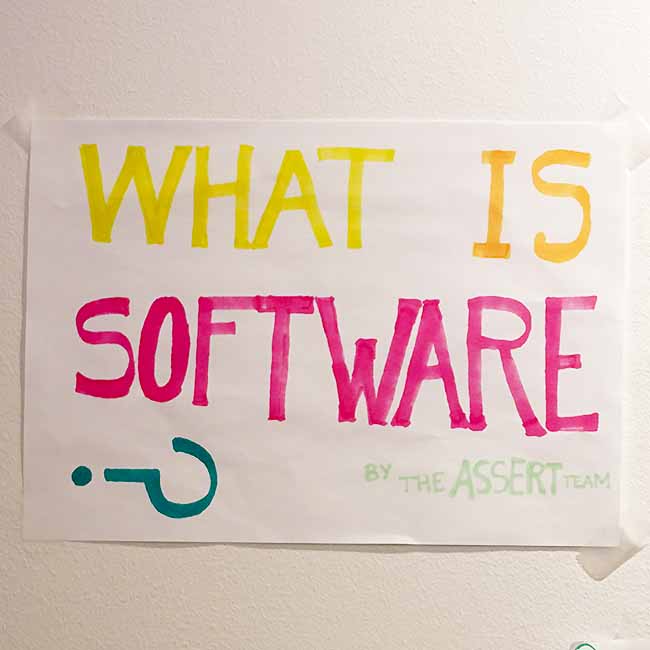 WHAT IS
SOFTWARE
?
BY THE ASSERT TEAM